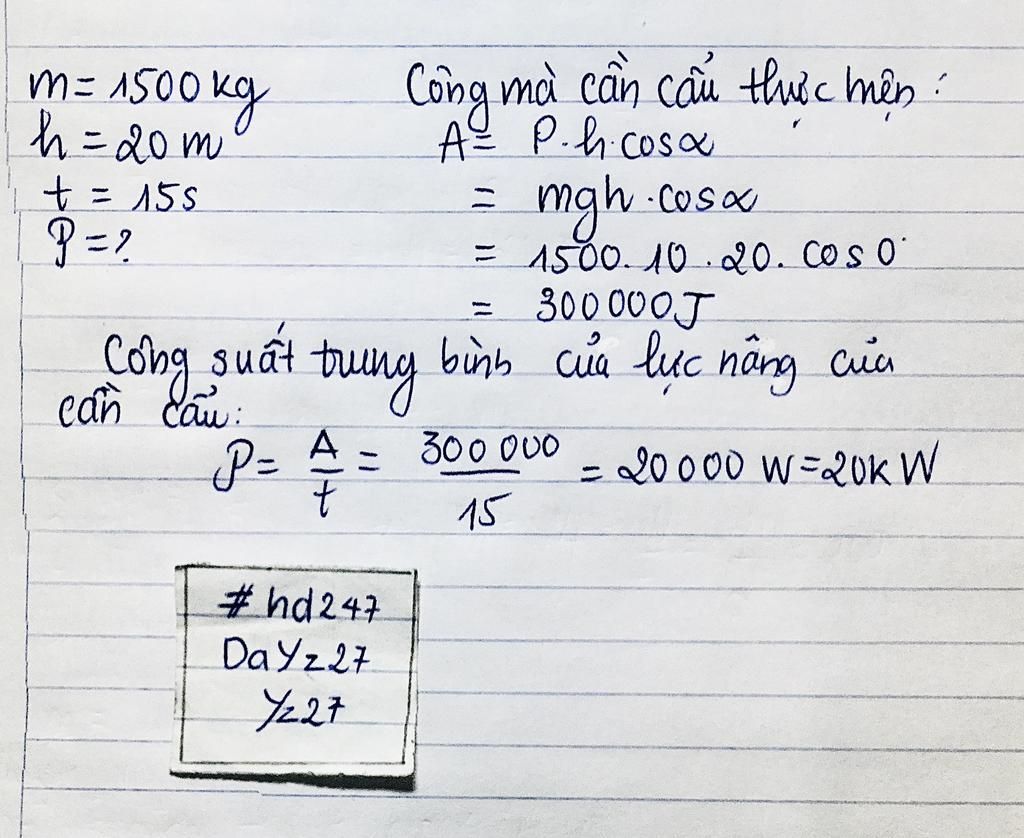 m = 1500 kg
h = 20 m
t = 15s
P = ?
Công mà cần cẩu thực hiện :
A = P.h.cosα
= mgh.cosα
= 1500.10.20.cos0°
= 300000J
Công suất trung bình của lực nâng của
cần cẩu:
P = A/t = 300 000/15 = 20 000 W = 20kW
#hd247
DaYz27
Yz27